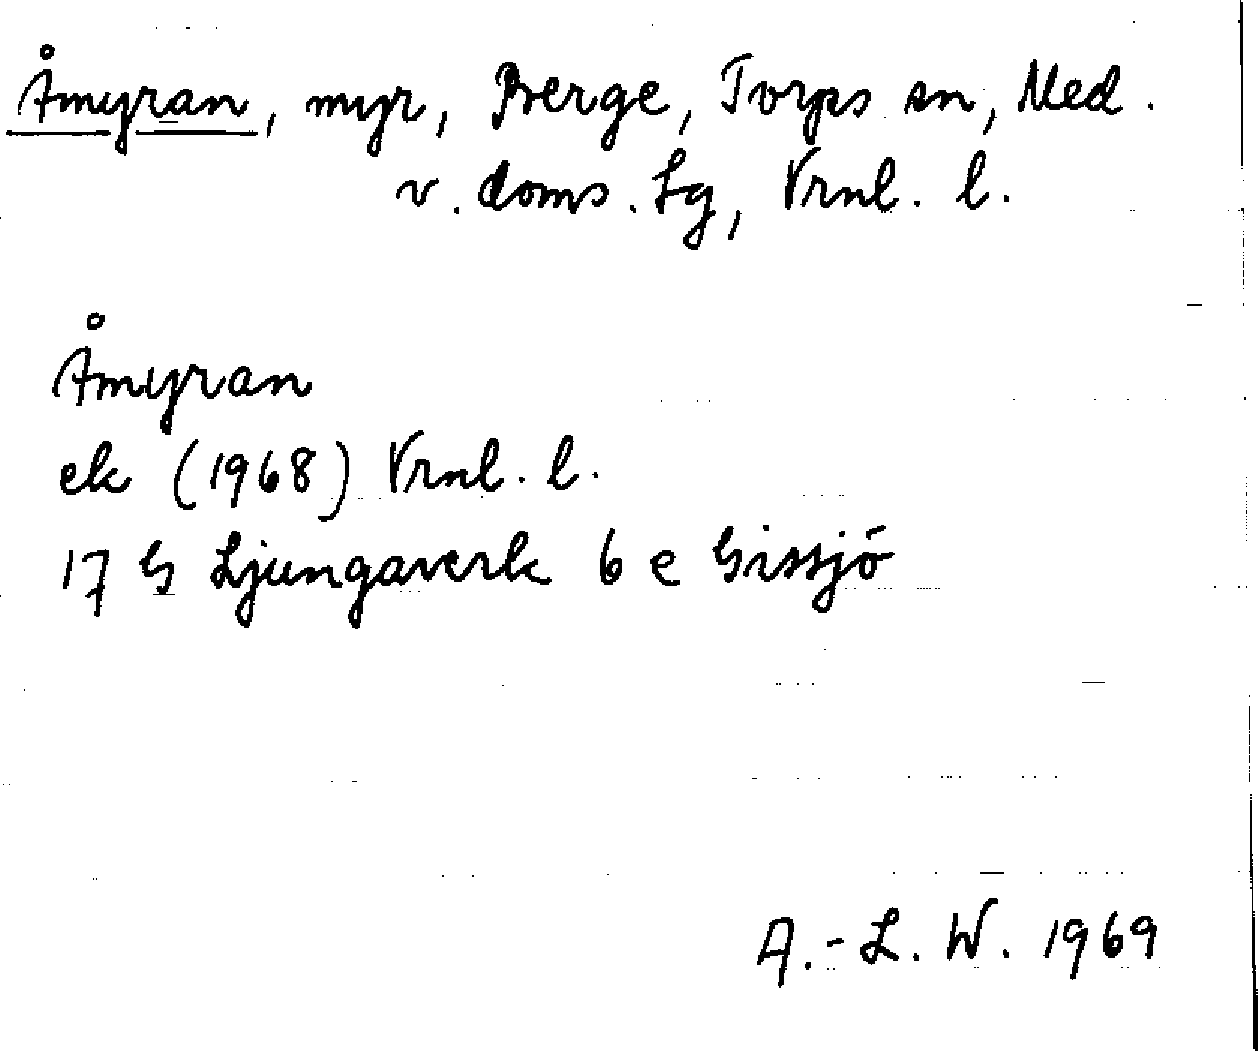 Åmyran, myr, Berge, Torps sn, Med.
v. doms. Lg, Vrnl. l.
Åmyran
ek (1968) Vrnl. l.
17 G Ljungaverk 6 e Gissjö
A.-L. W. 1969